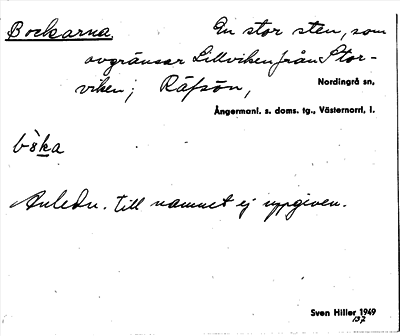 Bockarna En stor sten, som
avgränsar Lillviken från Stor-
viken; Räfsön, Nordingrå sn,
Ångermanl. s. doms. tg., Västernorrl. l.
Anledn. till namnet ej uppgiven.
Sven Hiller 1949
137